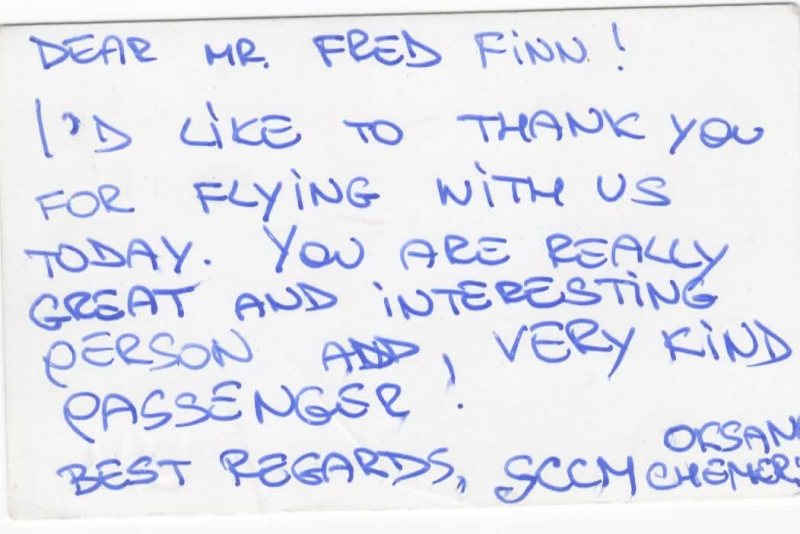 DEAR MR. FRED FINN!
I'D LIKE TO THANK YOU
FOR FLYING WITH US
TODAY. YOU ARE REALLY
GREAT AND INTERESTING
PERSON AND, VERY KIND
PASSENGER!
BEST REGARDS, SCCM OKSAN
CHEMER